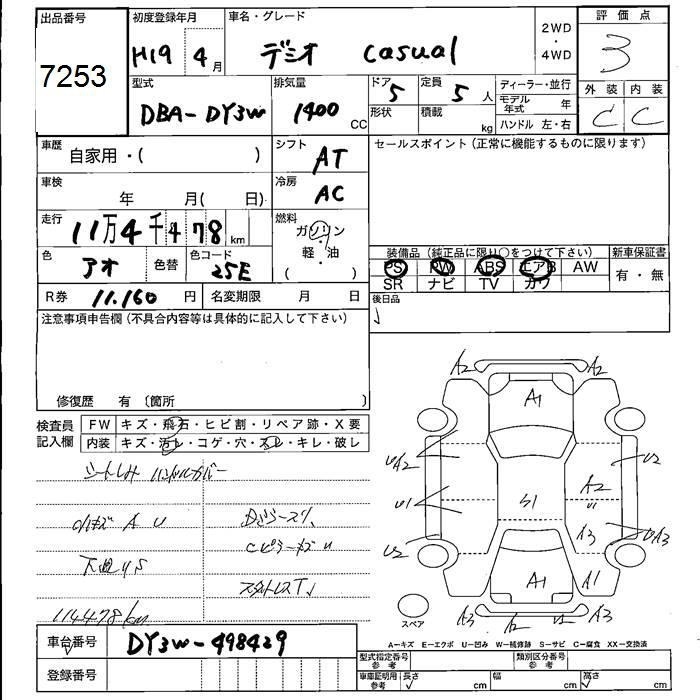 出品番号 初度登録年月 車名・グレード 2WD ・ 4WD 評価点
7253 H19 4月 デミオ casual 3
型式 排気量 ドア 定員 ディーラー・並行 外装 内装
DBA-DY3W 1400 CC 5 5人 モデル年式 年 C C
形状 積載 kg ハンドル 左・右
車歴 自家用・( ) シフト AT セールスポイント(正常に機能するものに限ります)
車検 年 月( 日) 冷房 AC
走行 11万4千478km 燃料 ガソリン・軽・油 ( )
色 アオ 色替 色コード 25E 装備品(純正品に限り○をつけて下さい) 新車保証書
PS PW ABS エアB AW 有・無
SR ナビ TV カワ
R券 11.160円 名変期限 月 日 後日品
注意事項申告欄(不具合内容等は具体的に記入して下さい)
修復歴 有〔箇所 〕
検査員記入欄 FW キズ・飛石・ヒビ割・リペア跡・X要
内装 キズ・汚レ・コゲ・穴・スレ・キレ・破レ
シートしみ ハンドルカバー
小キズ A U
下廻りS
Cピラーキズ U
スタットレスT
114478km
A2 A2
A1
UA2 U2
U1 S1 A2 U1
U2 A3 UA3
A1 A1
A3 A2 U2 A3
スペア
A－キズ E－エクボ U－凹み W－補修跡 S－サビ C－腐食 XX－交換済
車台番号 DY3W-498429
型式指定番号 参考 類別区分番号 参考
登録番号 車庫証明用 参考 長さ cm 幅 cm 高さ cm